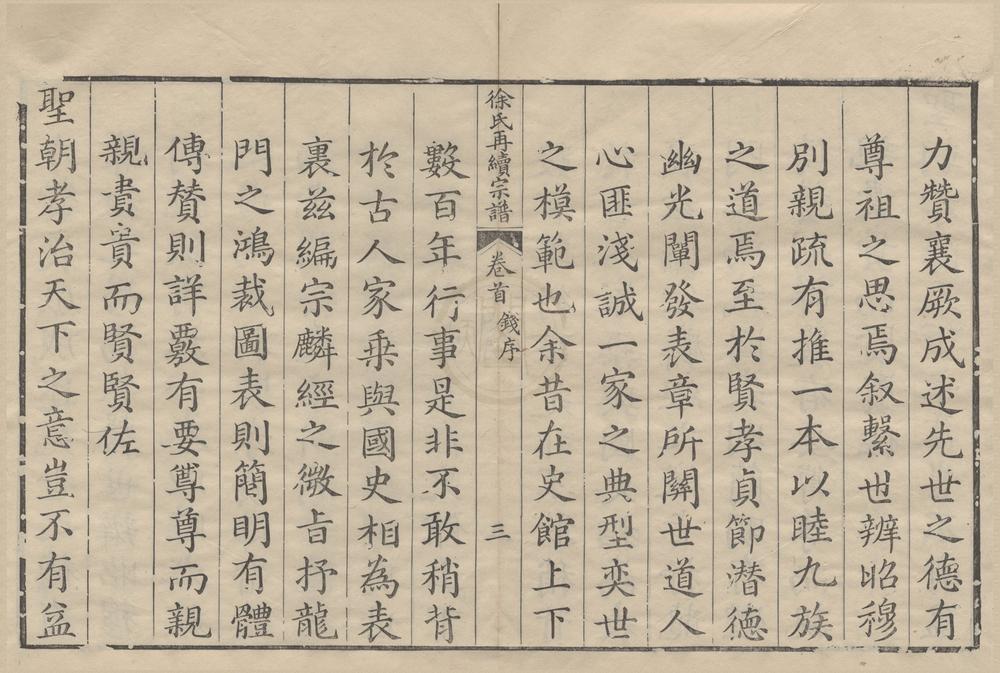 力贊襄厥成述先世之德有
尊祖之思焉叙繫也辨昭穆
別親疏有推一本以睦九族
之道焉至於賢孝貞節潛德
幽光闡發表章所關世道人
心匪淺誠一家之典型奕世
之模範也余昔在史館上下
徐氏再續宗譜
卷首 錢序
三
數百年行事是非不敢稍背
於古人家乘與國史相為表
裏茲編宗麟經之微旨抒龍
門之鴻裁圖表則簡明有體
傳贊則詳覈有要尊尊而親
親貴貴而賢賢佐
聖朝孝治天下之意豈不有益